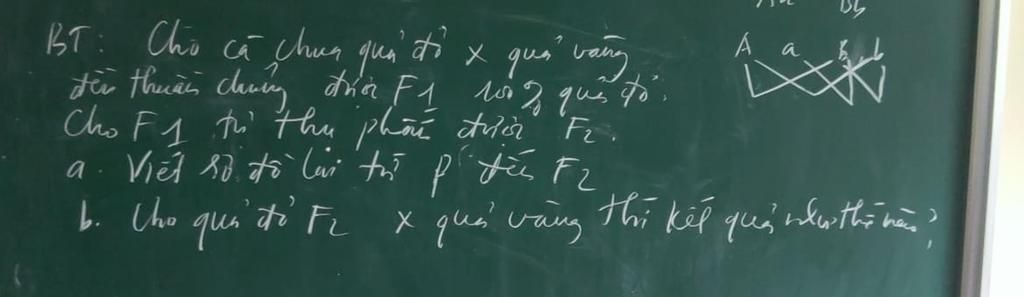 Aa Bb
BT: Cho cà chua quả đỏ x quả vàng
A a B b
đều thuần chủng được F1 100% quả đỏ.
Cho F1 tự thụ phấn được F2.
a. Viết sơ đồ lai từ P đến F2
b. Cho quả đỏ F2 x quả vàng thì kết quả như thế nào?